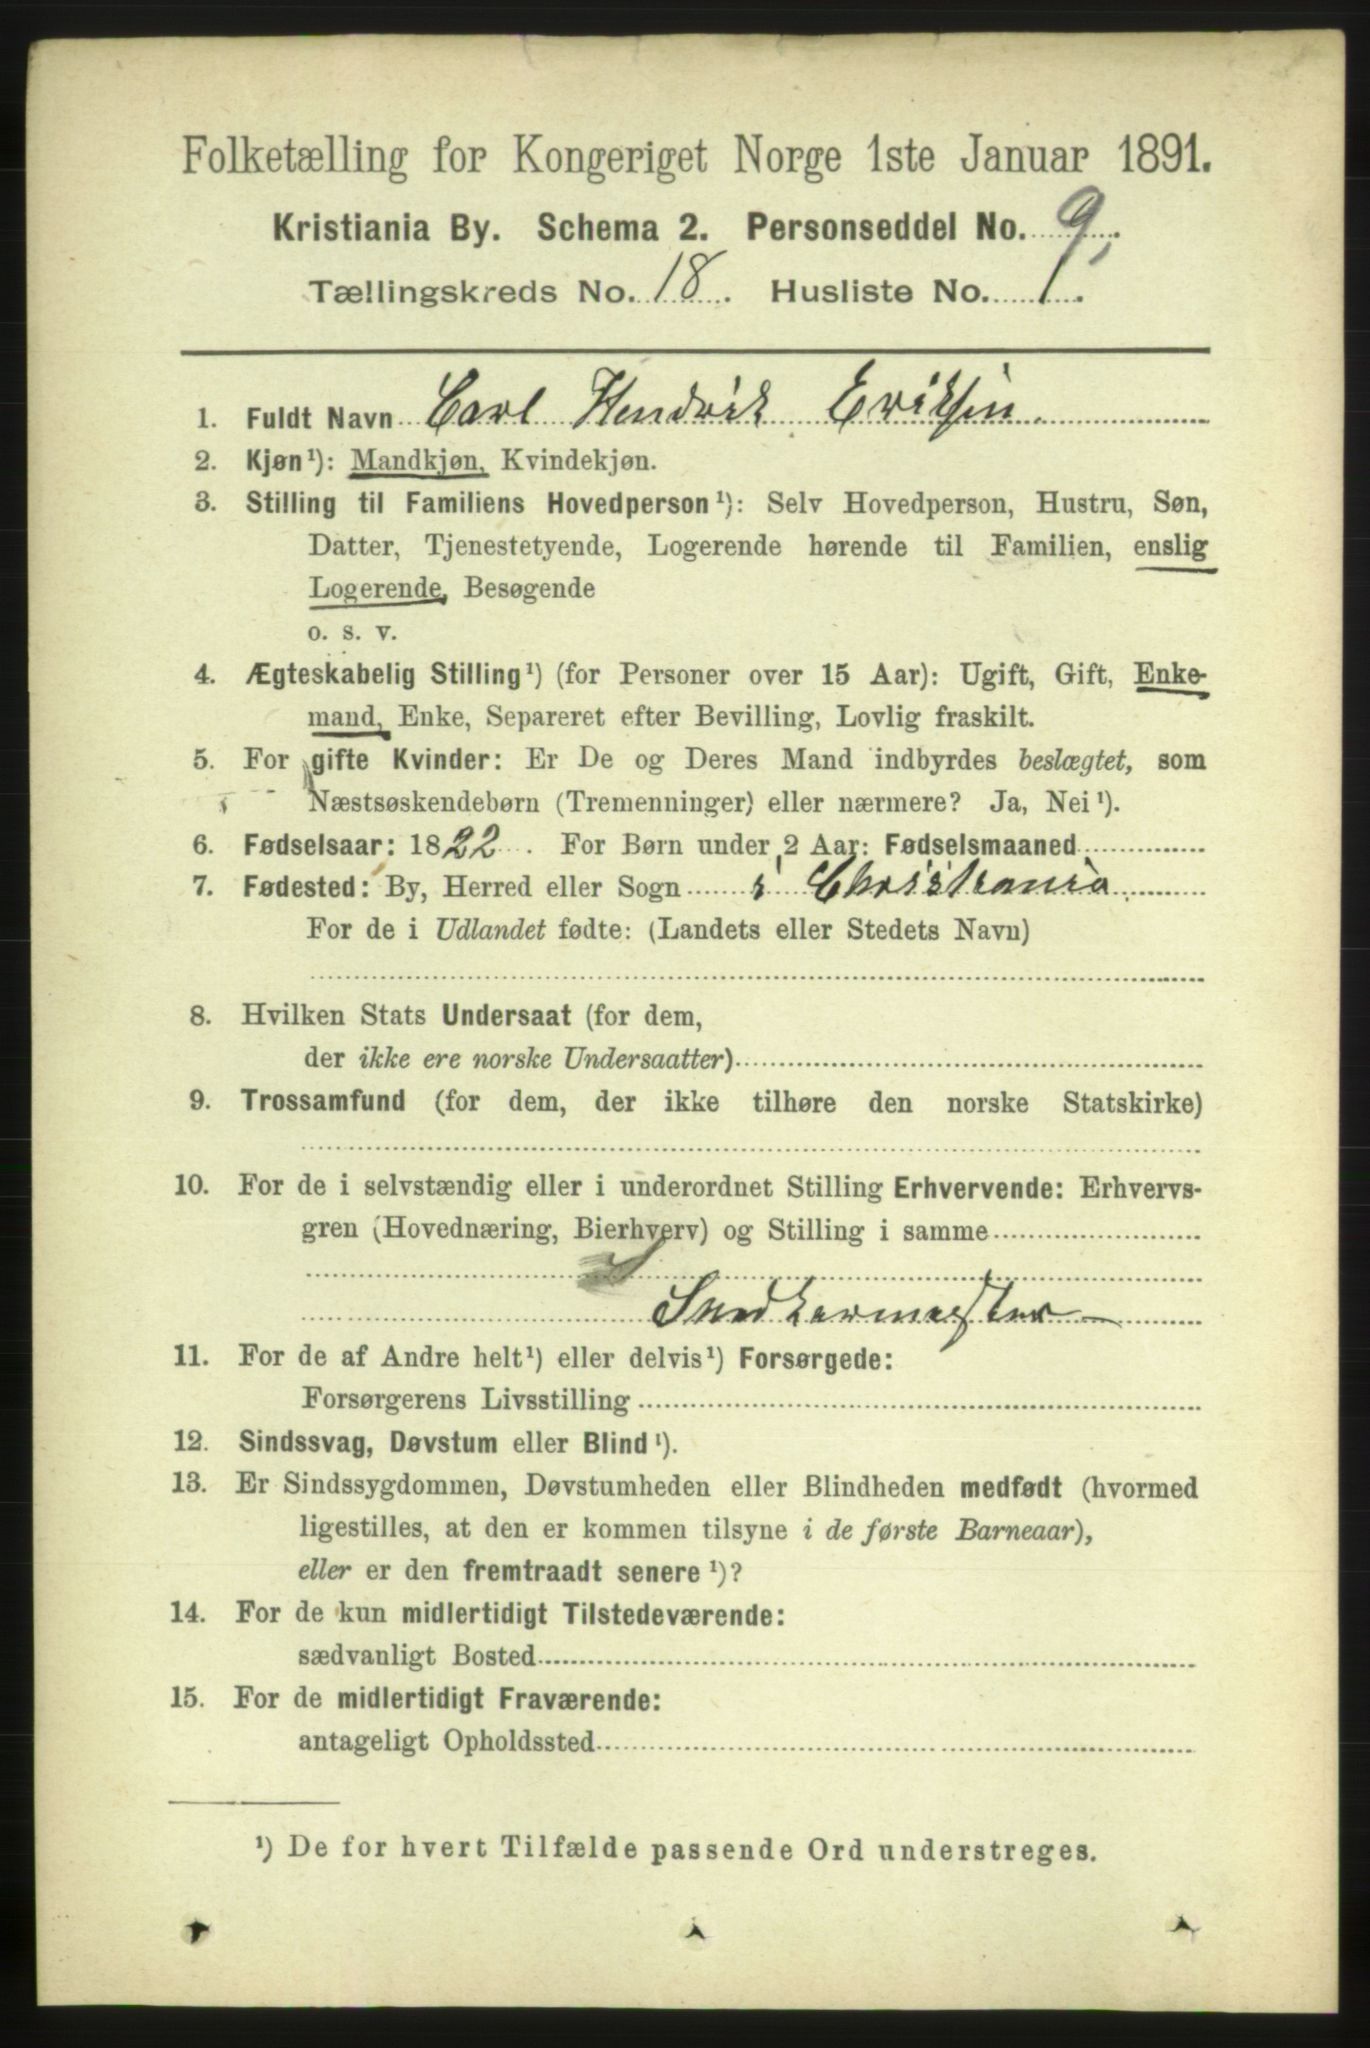 Folketælling for Kongeriget Norge 1ste Januar 1891.
Kristiania By. Schema 2. Personseddel No. 9,
Tællingskreds No. 18. Husliste No. 1.
1. Fuldt Navn Carl Hendrik Eriksen
2. Kjøn¹): Mandkjøn, Kvindekjøn.
3. Stilling til Familiens Hovedperson¹): Selv Hovedperson, Hustru, Søn,
Datter, Tjenestetyende, Logerende hørende til Familien, enslig
Logerende, Besøgende
o. s. v.
4. Ægteskabelig Stilling¹) (for Personer over 15 Aar): Ugift, Gift, Enke-
mand, Enke, Separeret efter Bevilling, Lovlig fraskilt.
5. For gifte Kvinder: Er De og Deres Mand indbyrdes beslægtet, som
Næstsøskendebørn (Tremenninger) eller nærmere? Ja, Nei¹).
6. Fødselsaar: 1822. For Børn under 2 Aar: Fødselsmaaned
7. Fødested: By, Herred eller Sogn i Christiania
For de i Udlandet fødte: (Landets eller Stedets Navn)
8. Hvilken Stats Undersaat (for dem,
der ikke ere norske Undersaatter)
9. Trossamfund (for dem, der ikke tilhøre den norske Statskirke)
10. For de i selvstændig eller i underordnet Stilling Erhvervende: Erhvervs-
gren (Hovednæring, Bierhverv) og Stilling i samme
Snedkermester
11. For de af Andre helt¹) eller delvis¹) Forsørgede:
Forsørgerens Livsstilling
12. Sindssvag, Døvstum eller Blind¹).
13. Er Sindssygdommen, Døvstumheden eller Blindheden medfødt (hvormed
ligestilles, at den er kommen tilsyne i de første Barneaar),
eller er den fremtraadt senere¹)?
14. For de kun midlertidigt Tilstedeværende:
sædvanligt Bosted
15. For de midlertidigt Fraværende:
antageligt Opholdssted
¹) De for hvert Tilfælde passende Ord understreges.